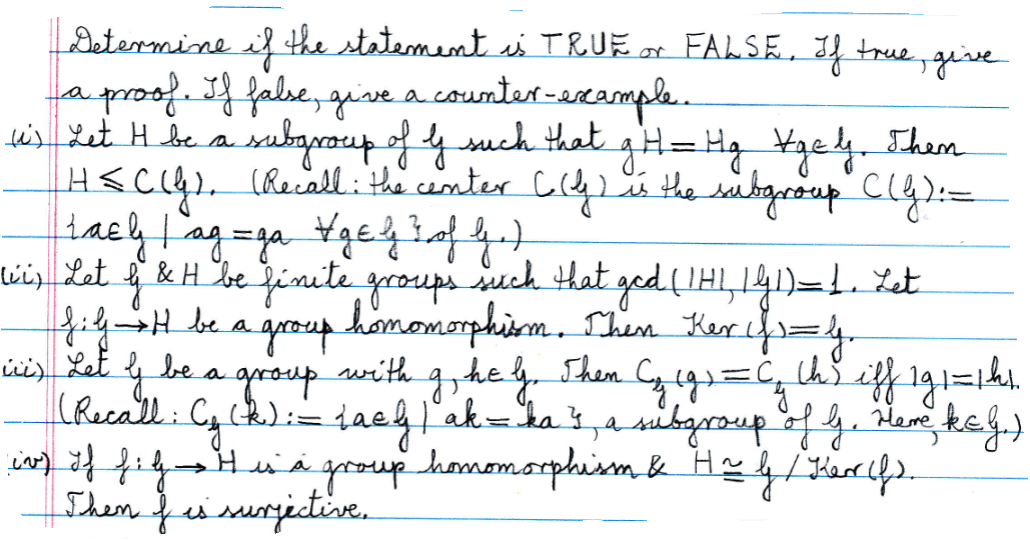 Determine if the statement is TRUE or FALSE. If true, give
a proof. If false, give a counter-example.
(i) Let H be a subgroup of G such that gH = Hg ∀g∈G. Then
H ≤ C(G). (Recall : the center C(G) is the subgroup C(G) :=
{a∈G | ag = ga ∀g∈G} of G.)
(ii) Let G & H be finite groups such that gcd(|H|, |G|) = 1. Let
f : G → H be a group homomorphism. Then Ker(f) = G.
iii) Let G be a group with g, h∈G. Then C_G(g) = C_G(h) iff |g| = |h|.
(Recall : C_G(k) := {a∈G | ak = ka}, a subgroup of G. Here, k∈G.)
iv) If f : G → H is a group homomorphism & H ≅ G / Ker(f).
Then f is surjective.